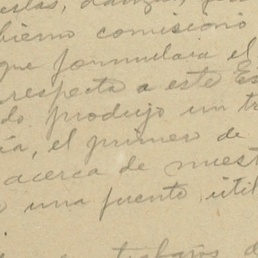 bierno comisionó
que formulara el
respecto a este Es
do produjo un tr
ía, el primero de
acerca de nuest
una fuente, útil
trabajos d